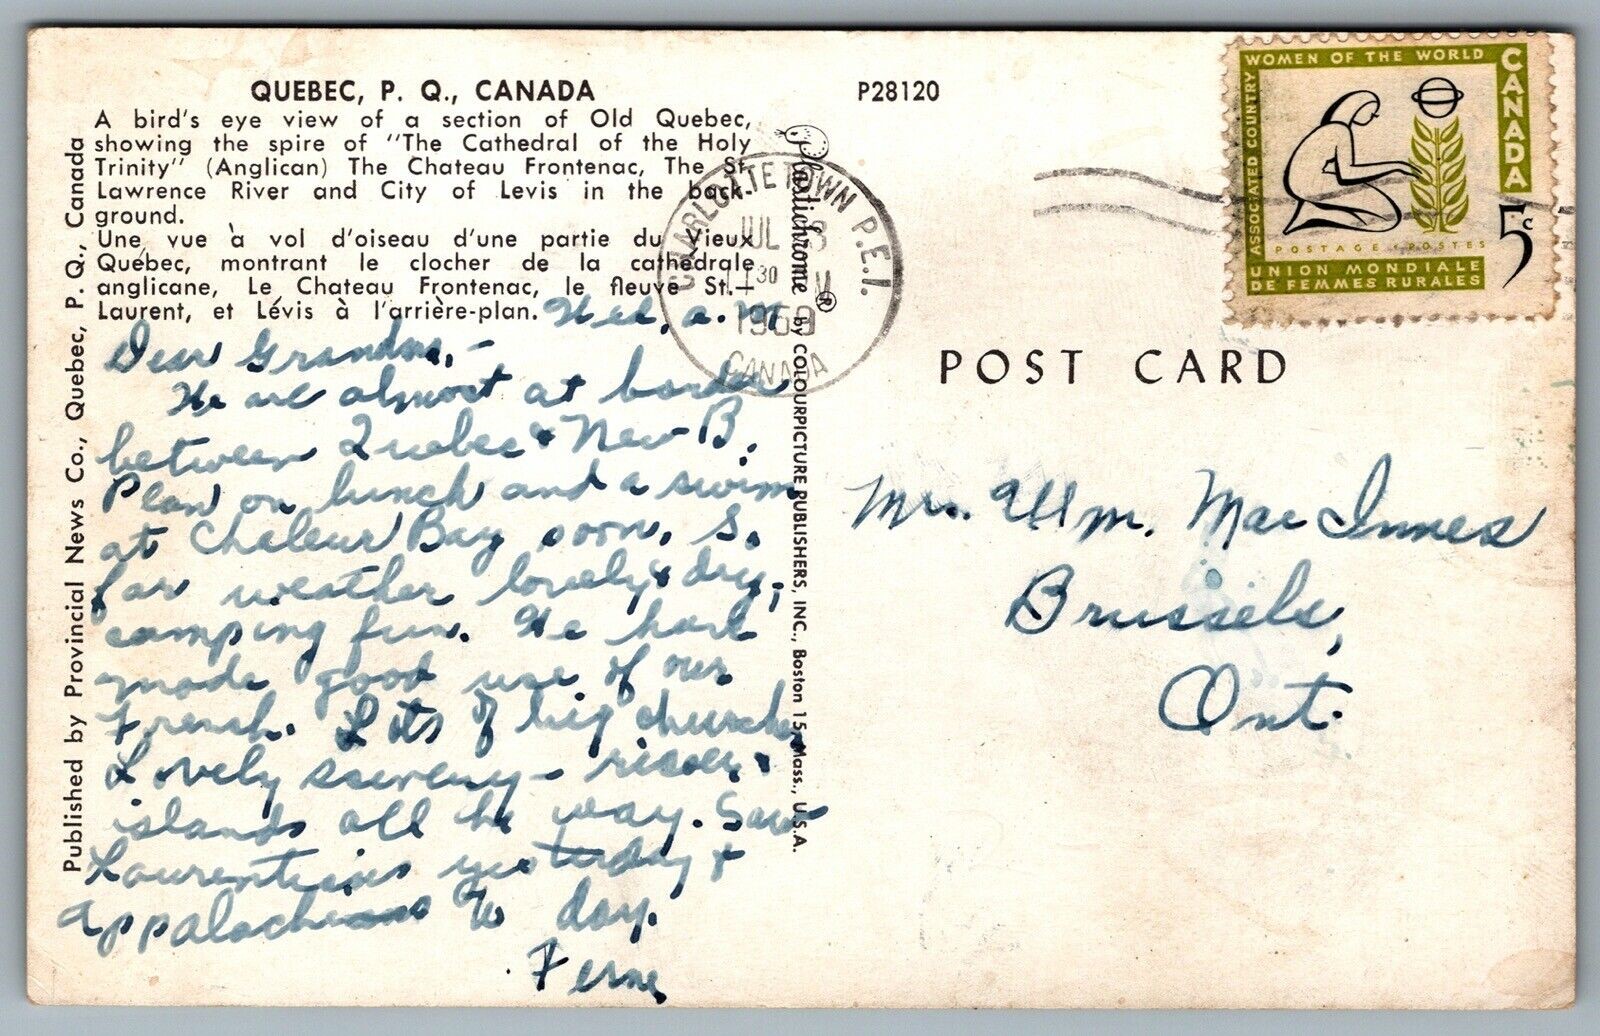 QUEBEC, P. Q., CANADA
A bird's eye view of a section of Old Quebec,
showing the spire of "The Cathedral of the Holy
Trinity" (Anglican) The Chateau Frontenac, The St.
Lawrence River and City of Levis in the back-
ground.
Une vue à vol d'oiseau d'une partie du Vieux
Québec, montrant le clocher de la cathédrale
anglicane, Le Chateau Frontenac, le fleuve St.-
Laurent, et Lévis à l'arrière-plan.
Wed. a.m.
Dear Grandma,-
We are almost at border
between Quebec & New B.
Plan on lunch and a swim
at Chaleur Bay soon. So
far weather lovely & dry,
camping fun. We have
made good use of our
French. Lots of big churches
Lovely scenery - rivers &
islands all the way. Saw
Laurentians yesterday &
Appalachians to day.
Ferne
Published by Provincial News Co., Quebec, P. Q., Canada
Plastichrome® by COLOURPICTURE PUBLISHERS, INC., Boston 15, Mass., U.S.A.
P28120
CHARLOTTETOWN P.E.I.
JUL 8
130 PM
1960
CANADA
ASSOCIATED COUNTRY WOMEN OF THE WORLD
CANADA
5c
POSTAGE POSTES
UNION MONDIALE
DE FEMMES RURALES
POST CARD
Mrs. Wm. MacInnes
Brussels,
Ont.